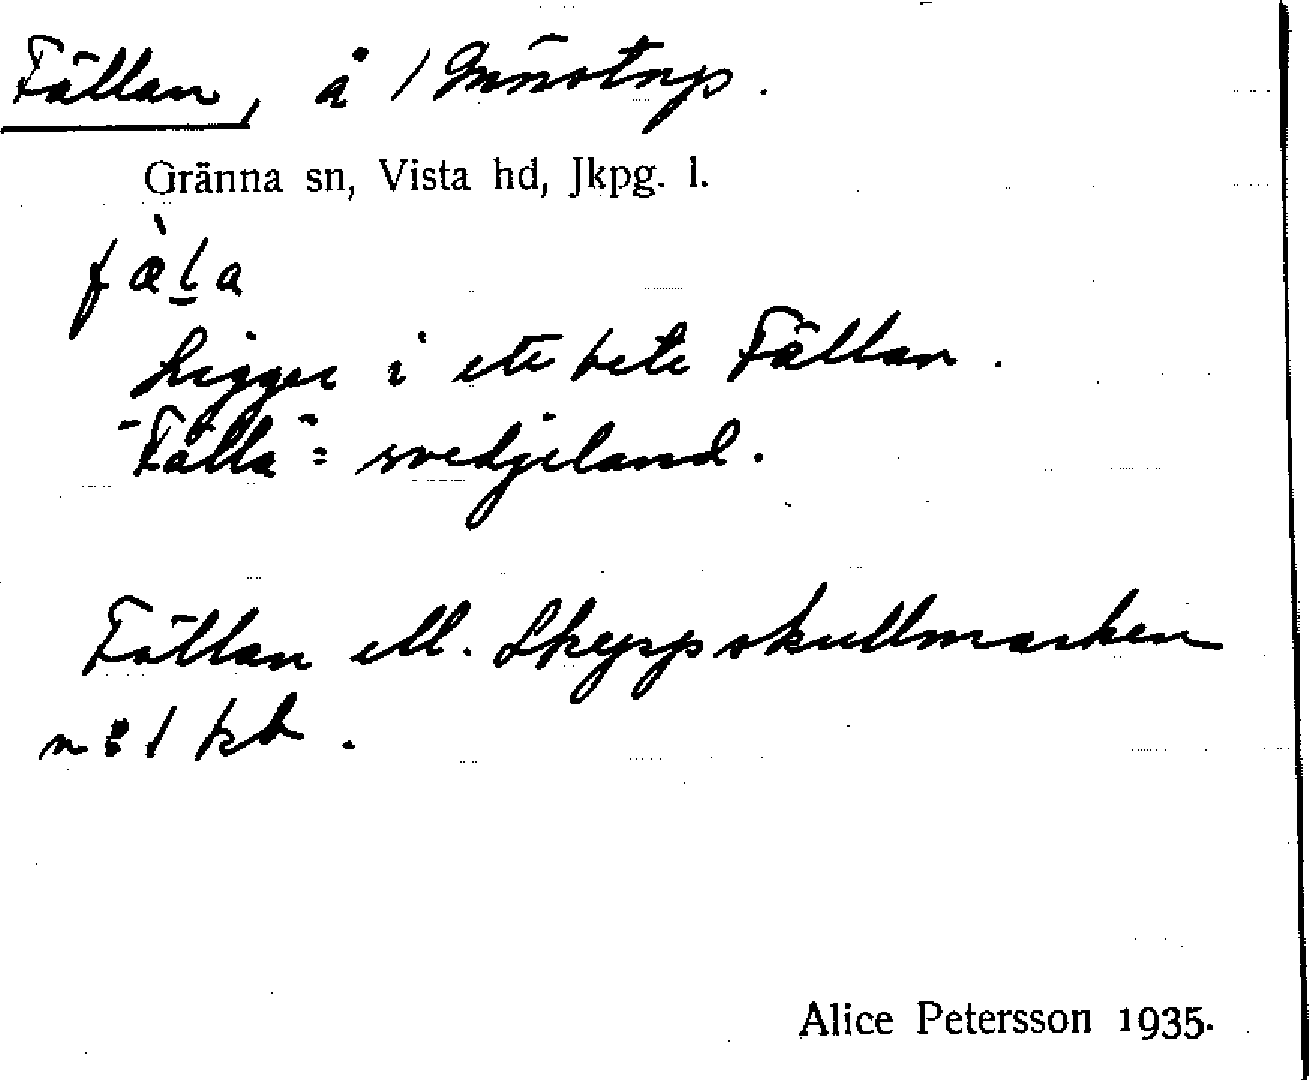 Fällan, å / Mönstrp.
Gränna sn, Vista hd, Jkpg. l.
fàḷa
Ligger i ett bete Fällan.
"Fälla" = svedjeland.
Fällan ell. Skeppskullmarken
n:o 1 kb.
Alice Petersson 1935.